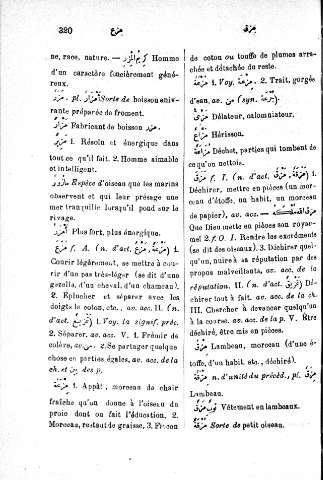 320 مزع مزق
ne, race, nature. — كريم المزر Homme
d'un caractère foncièrement géné-
reux.
مزر, pl. أمزار Sorte de boisson eniv-
rante préparée de froment.
مزار Fabricant de boisson مزر
مزير 1. Résolu et énergique dans
tout ce qu'il fait. 2. Homme aimable
et intelligent.
مازور Espèce d'oiseau que les marins
observent et qui leur présage une
mer tranquille lorsqu'il pond sur le
rivage.
أمزر Plus fort, plus énergique.
مزع f. A. (n. d'act. مزع, مزعة) 1.
Courir légèrement, se mettre à cou-
rir d'un pas très-léger (se dit d'une
gazelle, d'un cheval, d'un chameau).
2. Eplucher et séparer avec les
doigts le coton, etc., av. acc. II. (n.
d'act. تمزيع) 1. Voy. la signif. préc.
2. Séparer, av. acc. V. 1. Frémir de
colère, av. من. 2. Se partager quelque
chose en parties égales, av. acc. de la
ch. et بين des p.
مزعة 1. Appât, morceau de chair
fraîche qu'on donne à l'oiseau de
proie dont on fait l'éducation. 2.
Morceau, restant de graisse. 3. Flocon
de coton ou touffe de plumes arra-
chée et détachée du reste.
مزعة 1. Voy. مزعة. 2. Trait, gorgée
d'eau, av. من (syn. جرعة).
مزاع Délateur, calomniateur.
مزاع Hérisson.
مزاعة Déchet, parties qui tombent de
ce qu'on nettoie.
مزق f. I. (n. d'act. مزق, مزقة) 1.
Déchirer, mettre en pièces (un mor-
ceau d'étoffe, un habit, un morceau
de papier), av. acc. — مزق الله ملكه
Que Dieu mette en pièces son royau-
me! 2. f. O. I. Rendre les excréments
(se dit des oiseaux). 3. Déchirer quel-
qu'un, nuire à sa réputation par des
propos malveillants, av. acc. de la
réputation. II. (n. d'act. تمزيق) Dé-
chirer tout à fait. av. acc. de la ch.
III. Chercher à devancer quelqu'un
à la course. av. acc. de la p. V. Être
déchiré, être mis en pièces.
مزق Lambeau, morceau (d'une é-
toffe, d'un habit. etc., déchiré).
مزقة n. d'unité du précéd., pl. مزق
Lambeau.
ثوب مزق Vêtement en lambeaux.
مزقة Sorte de petit oiseau.